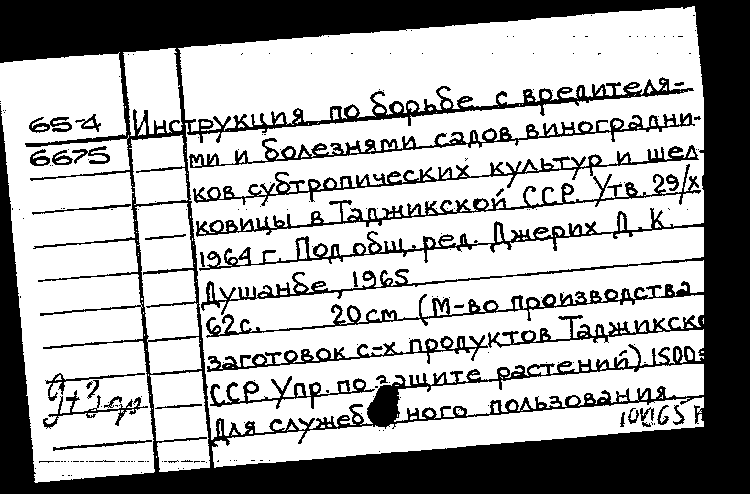 65-4 Инструкция по борьбе с вредителя-
6675 ми и болезнями садов, виноградни-
ков, субтропических культур и шел-
ковицы в Таджикской ССР. Утв. 29/XI
1964 г. Под общ. ред. Джерих Д. К.
Душанбе, 1965.
62с. 20см (М-во производства
заготовок с-х. продуктов Таджикско
ССР. Упр. по защите растений). 1500э
Для служебного пользования.